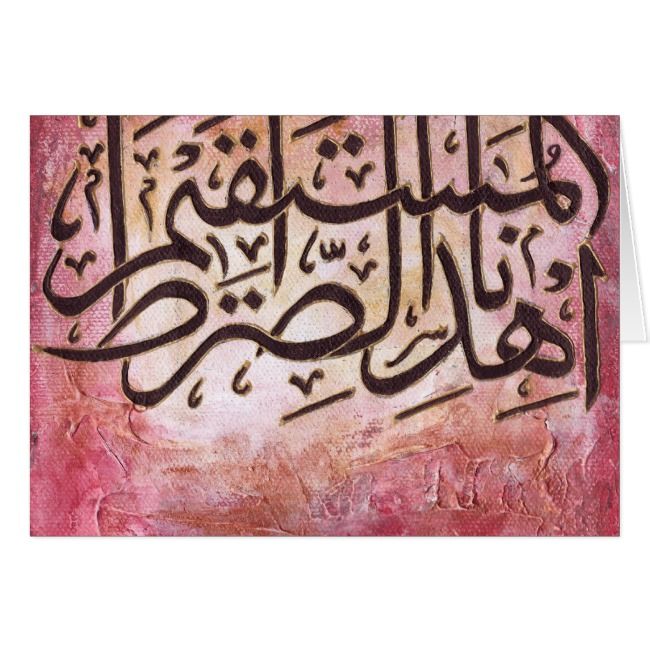 اهدنا الصرط
المستقيم